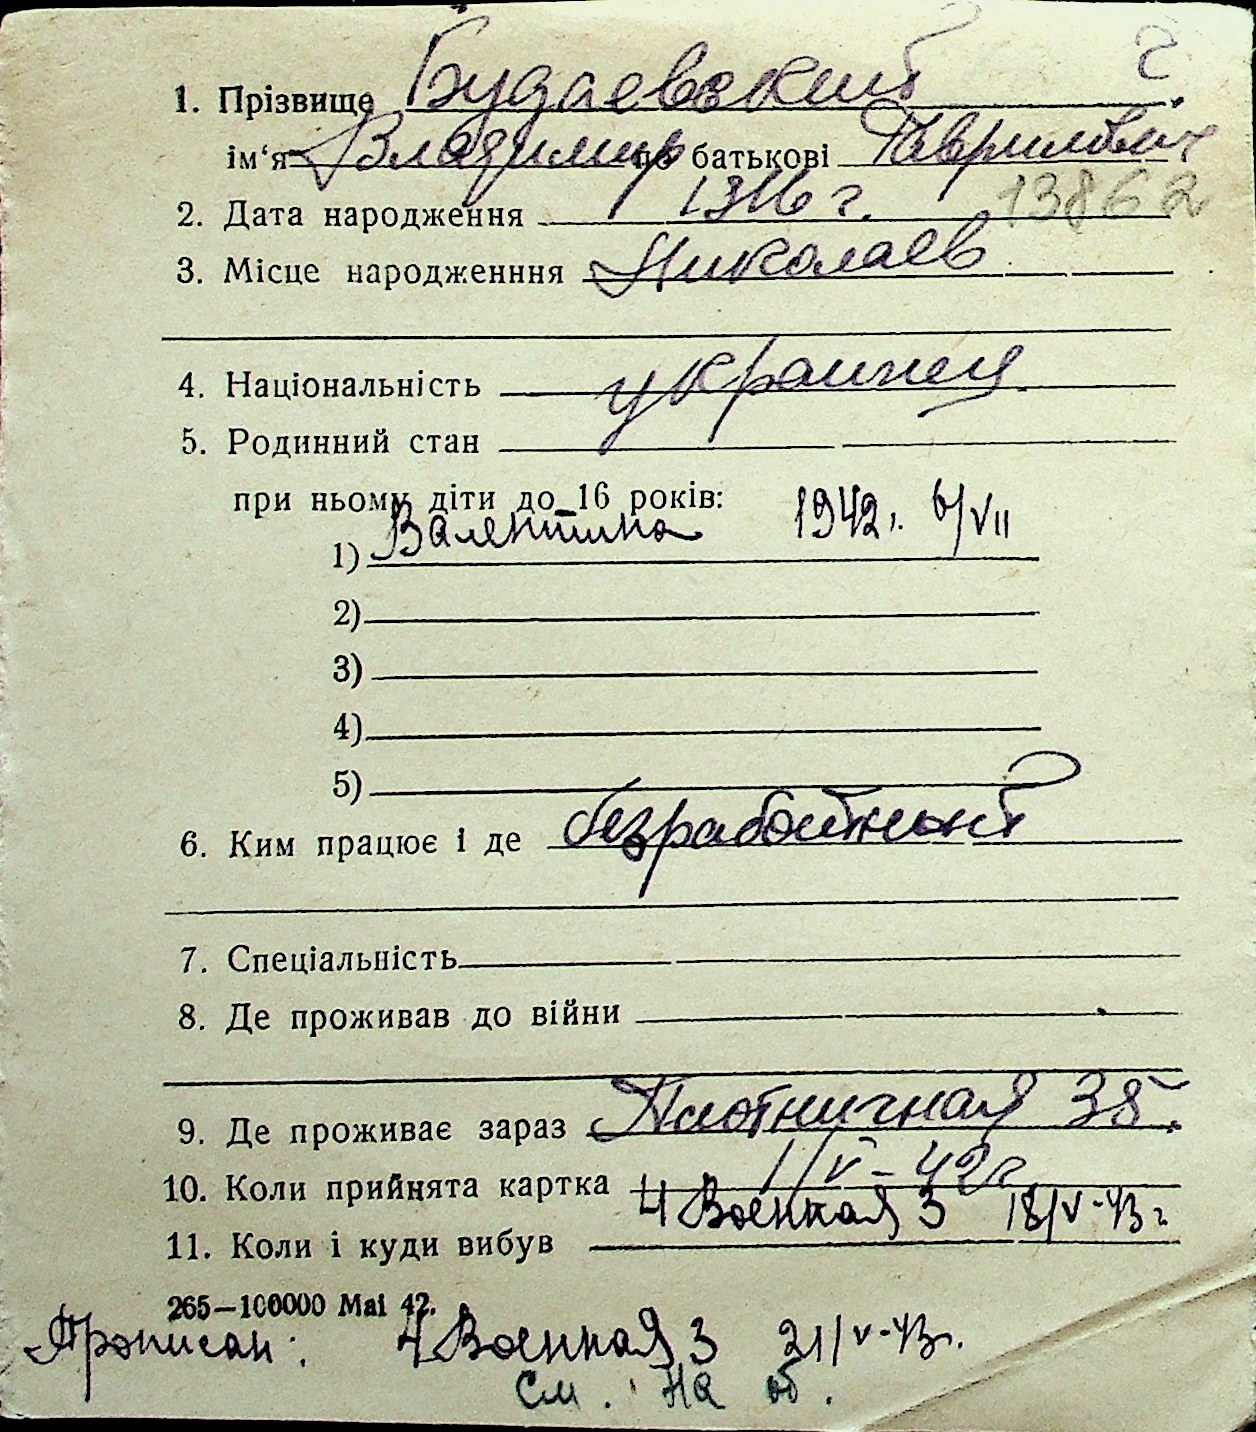 ч.
1. Прізвище Будаевский
ім‘я Владимир по батькові Гаврилович
2. Дата народження 1916 г. 13862
3. Місце народженння Николаев
4. Національність украинец
5. Родинний стан
при ньому діти до 16 років:
1) Валентина 1942 г. 6/VII
2)
3)
4)
5)
6. Ким працює і де безработный
7. Спеціальність
8. Де проживав до війни
9. Де проживає зараз Плотничная 35.
10. Коли прийнята картка 1/V-42г
11. Коли і куди вибув 4 Военная 3 18/V-43 г.
265—100000 Mai 42.
Прописан: 4 Военная 3 21/V-43г.
См. на об.